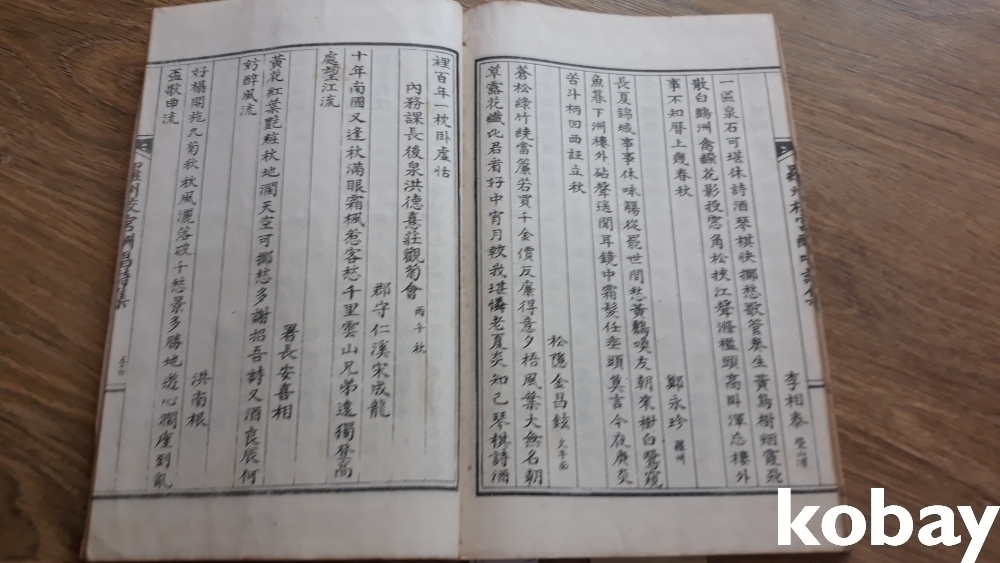 李相泰 榮山浦
一區泉石可堪休詩酒琴棋快擲愁歌管奏生黃鳥樹烟霞飛
散白鷗洲禽飜花影投窓角松挾江聲滌檻頭高臥渾忘樓外
事不知曆上幾春秋 鄭永珍 羅州
長夏錦城事事休咏觴從罷世間愁黃鸝喚友朝來樹白鷺窺
魚暮下洲樓外砧聲遙聞耳鏡中霜髮任垂頭莫言今夜庚炎
苦斗柄回西証立秋 松隱金昌鉉 文平面
蒼松綠竹繞當簾若買千金價反廉得意夕梧風葉大無名朝
草露花纖比君看好中宵月較我堪憐老夏炎知己琴棋詩酒
裡百年一枕卦虛恬
內務課長後泉洪德憙莊觀菊會 丙午秋
郡守仁溪宋成龍
十年南國又逢秋滿眼霜楓惹客愁千里雲山兄弟遠獨登高
處望江流
署長安喜相
黃花紅葉艷粧秋地濶天空可擲愁多謝招吾詩又酒良辰何
妨醉風流
洪南根
好樽開施九菊秋秋風灑落破千愁景多勝地遊心濶座到亂
盃歌曲流
kobay